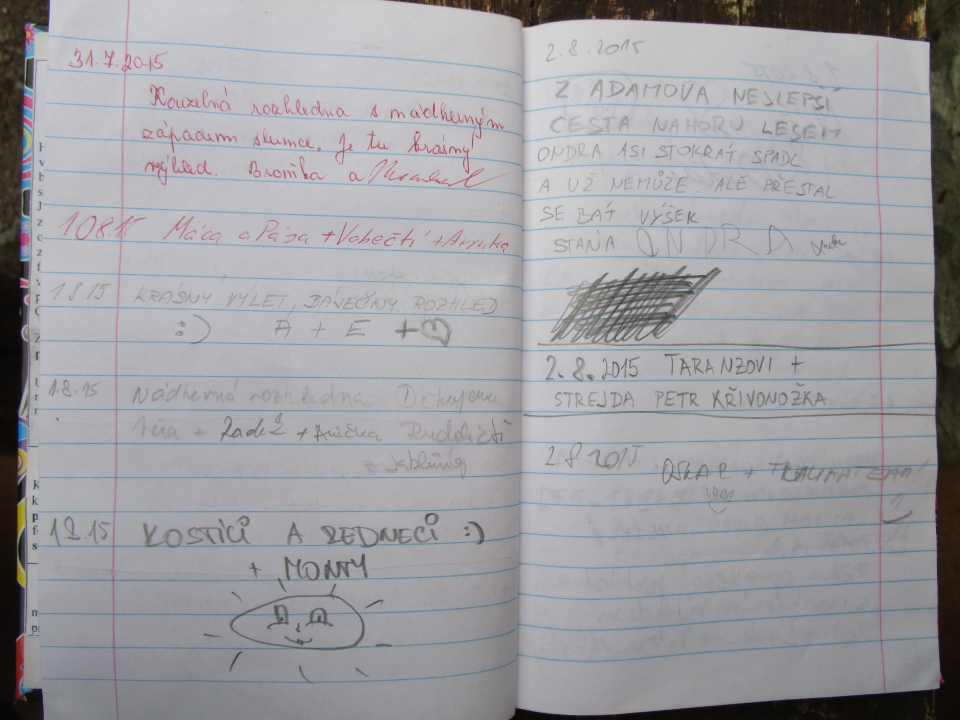 31.7.2015
Kouzelná rozhledna s nádherným
západem slunce. Je tu krásný
výhled. Bromba a
1.08.15 Máca a Pája + Vobečtí + Anička
1.8.15 KRÁSNÝ VÝLET, BÁJEČNÝ ROZHLED
:) A + E +
1.8.15 Nádherná rozhledna Děkujeme
+ Radež + Anička
z
1.8.15 KOSTÍCI A ZEDNECI :)
+ MONTY
2.8.2015
Z ADAMOVA NEJLEPŠÍ
CESTA NAHORU LESEM
ONDRA ASI STOKRÁT SPADL
A UŽ NEMŮŽE. ALE PŘESTAL
SE BÁT VÝŠEK
STAŇA ONDRA
2.8.2015 TARANZOVI +
STREJDA PETR KŘIVONOŽKA
2.8.2015
OSKAR + TRAUMATEAM!